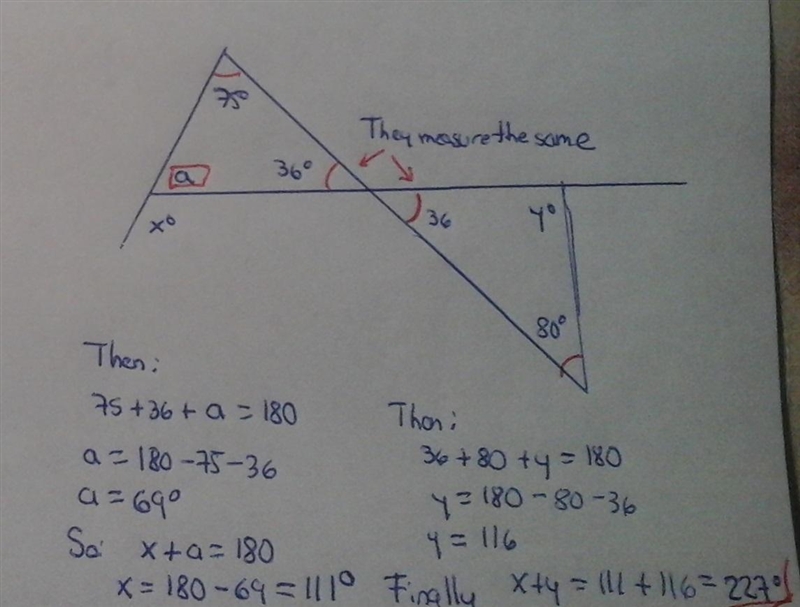 75°
They measure the same
36°
a
x°
36
y°
80°
Then:
75+36+a=180
a=180-75-36
a=69°
So: x+a=180
x=180-69=111°
Then:
36+80+y=180
y=180-80-36
y=116
Finally x+y=111+116=227°